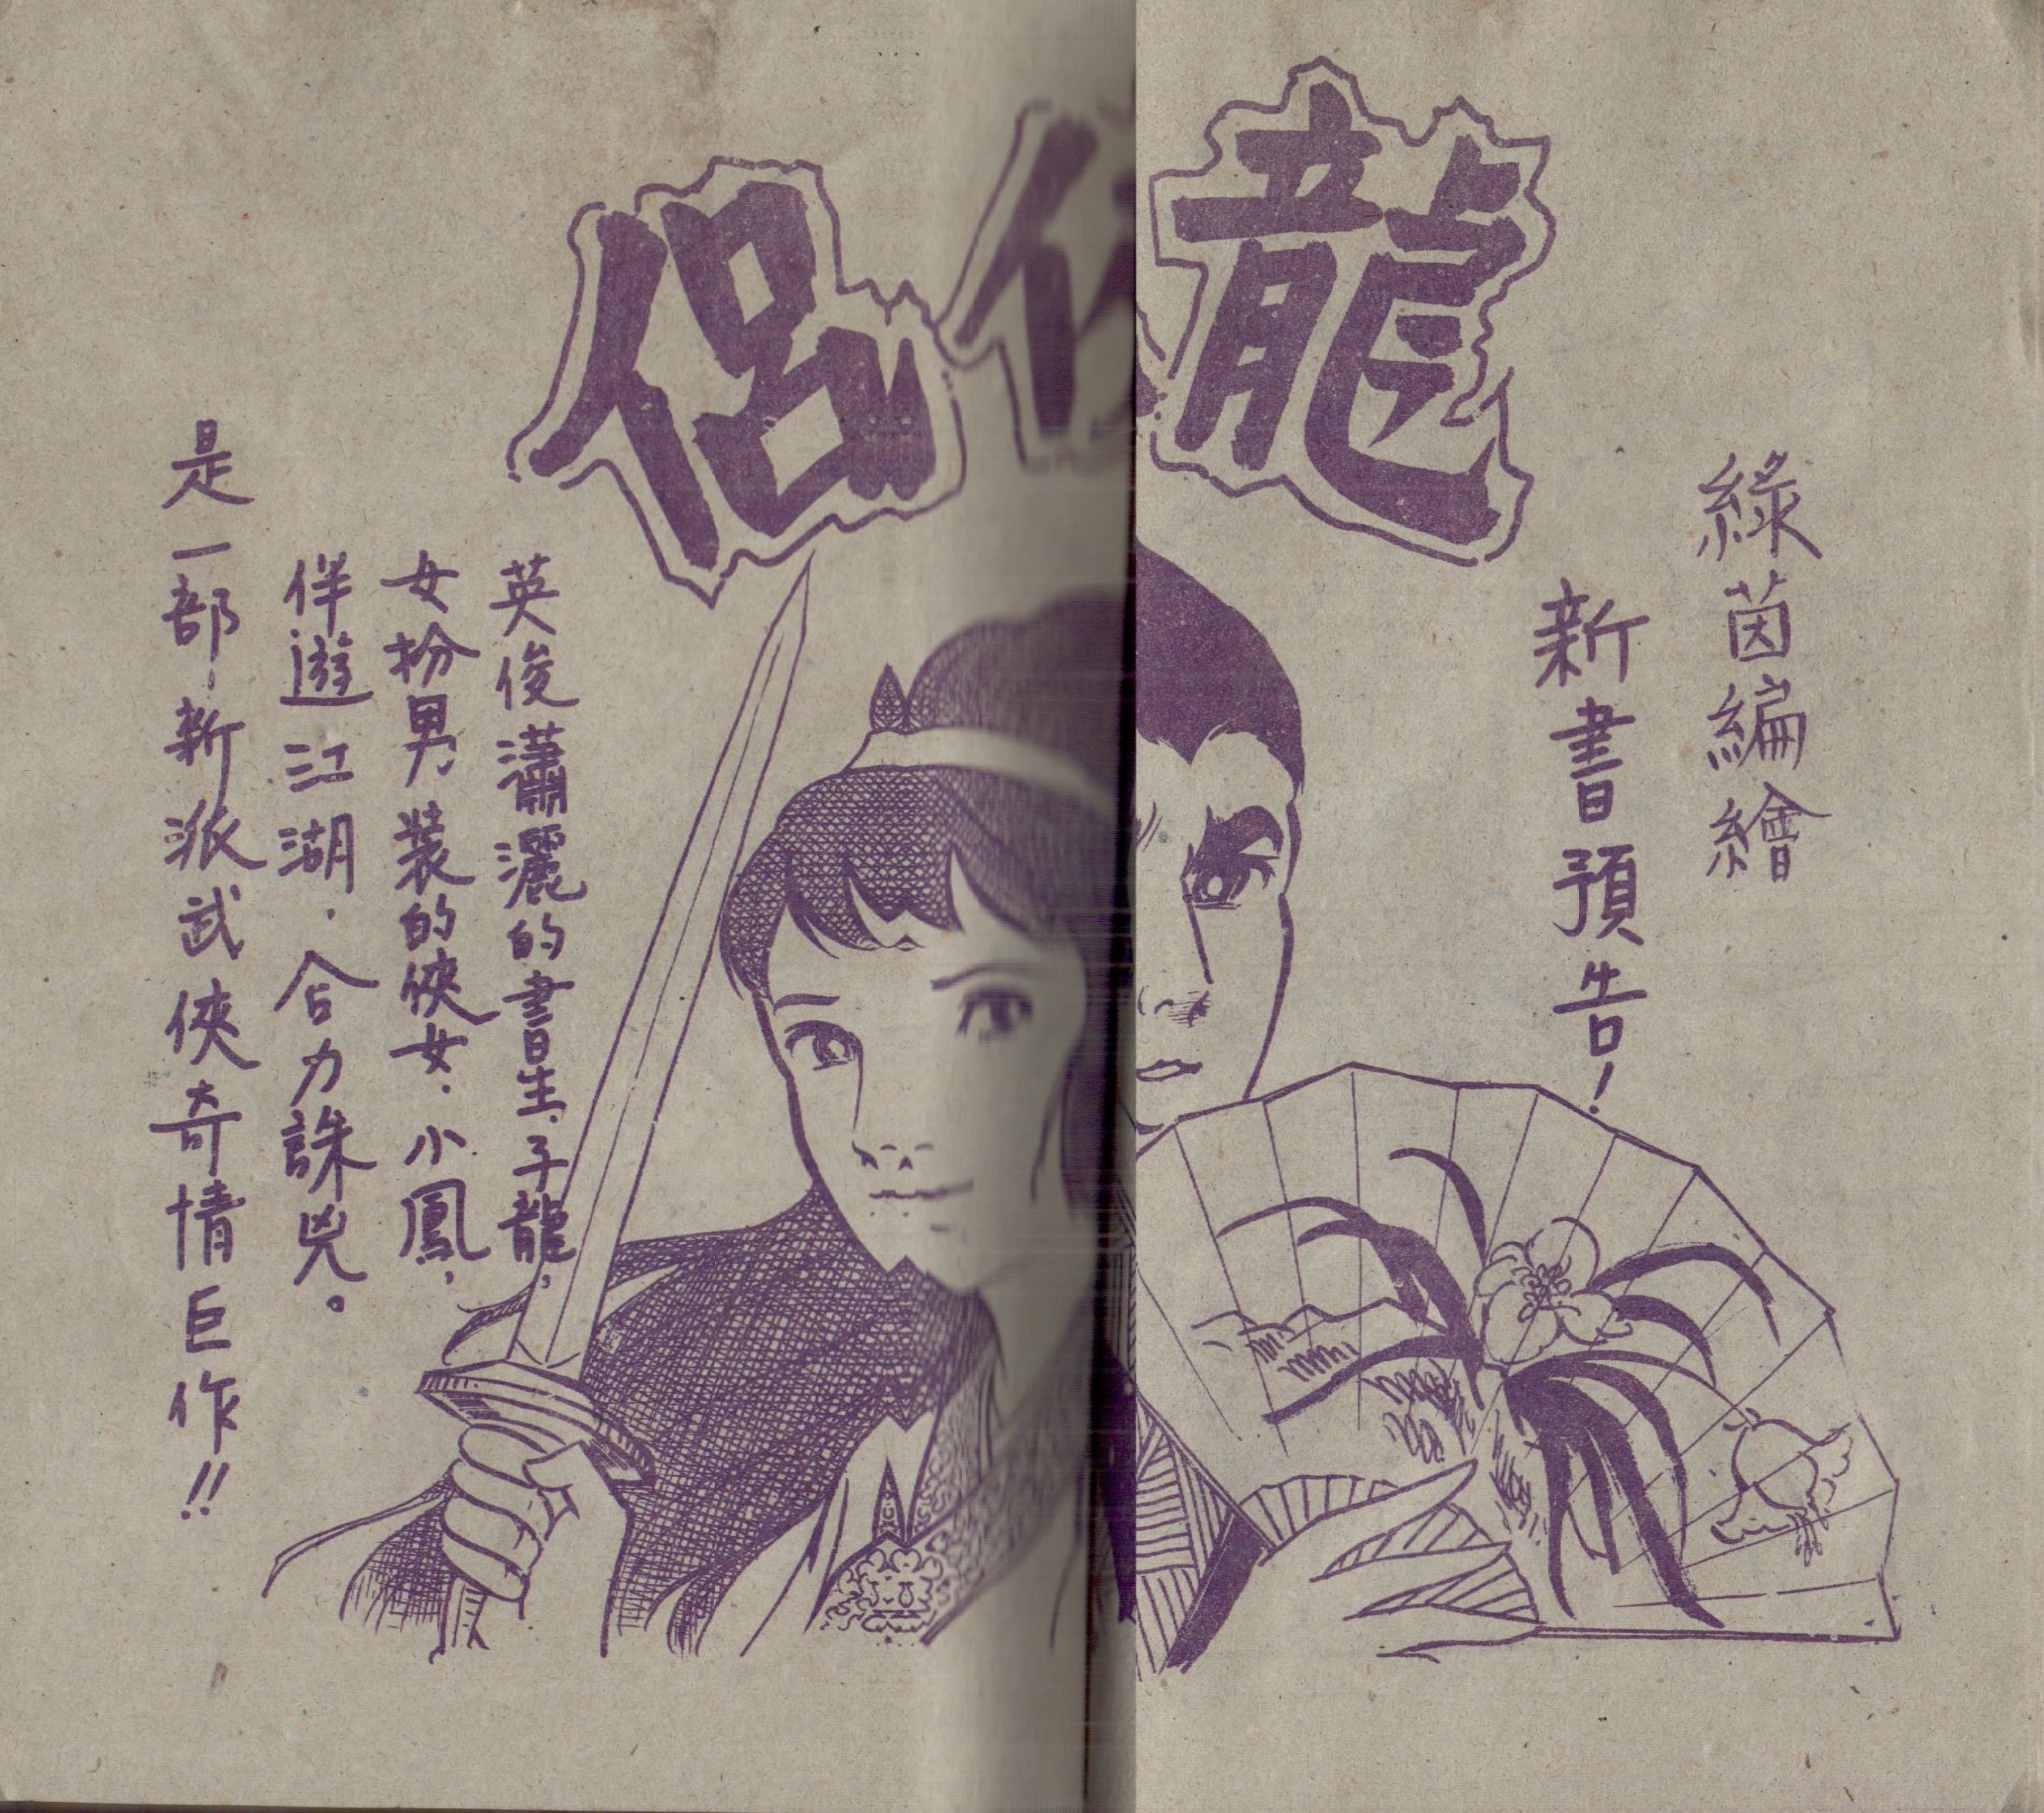 綠茵編繪
新書預告！
龍 侶
英俊瀟灑的書生．子龍，
女扮男裝的俠女．小鳳，
伴遊江湖．合力誅兇。
是一部新派武俠奇情巨作！！